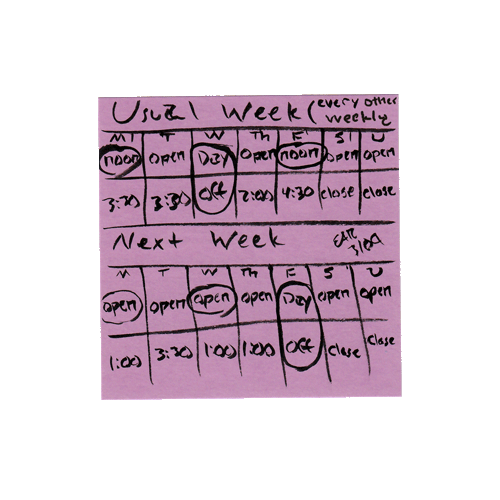 Usual Week (every other
weekly
M T W Th F S U
noon open Day open noon open open
3:30 3:30 Off 2:00 4:30 close close
Next Week
3/09
M T W Th F S U
open open open open Day open open
1:00 3:30 1:00 1:00 Off close close